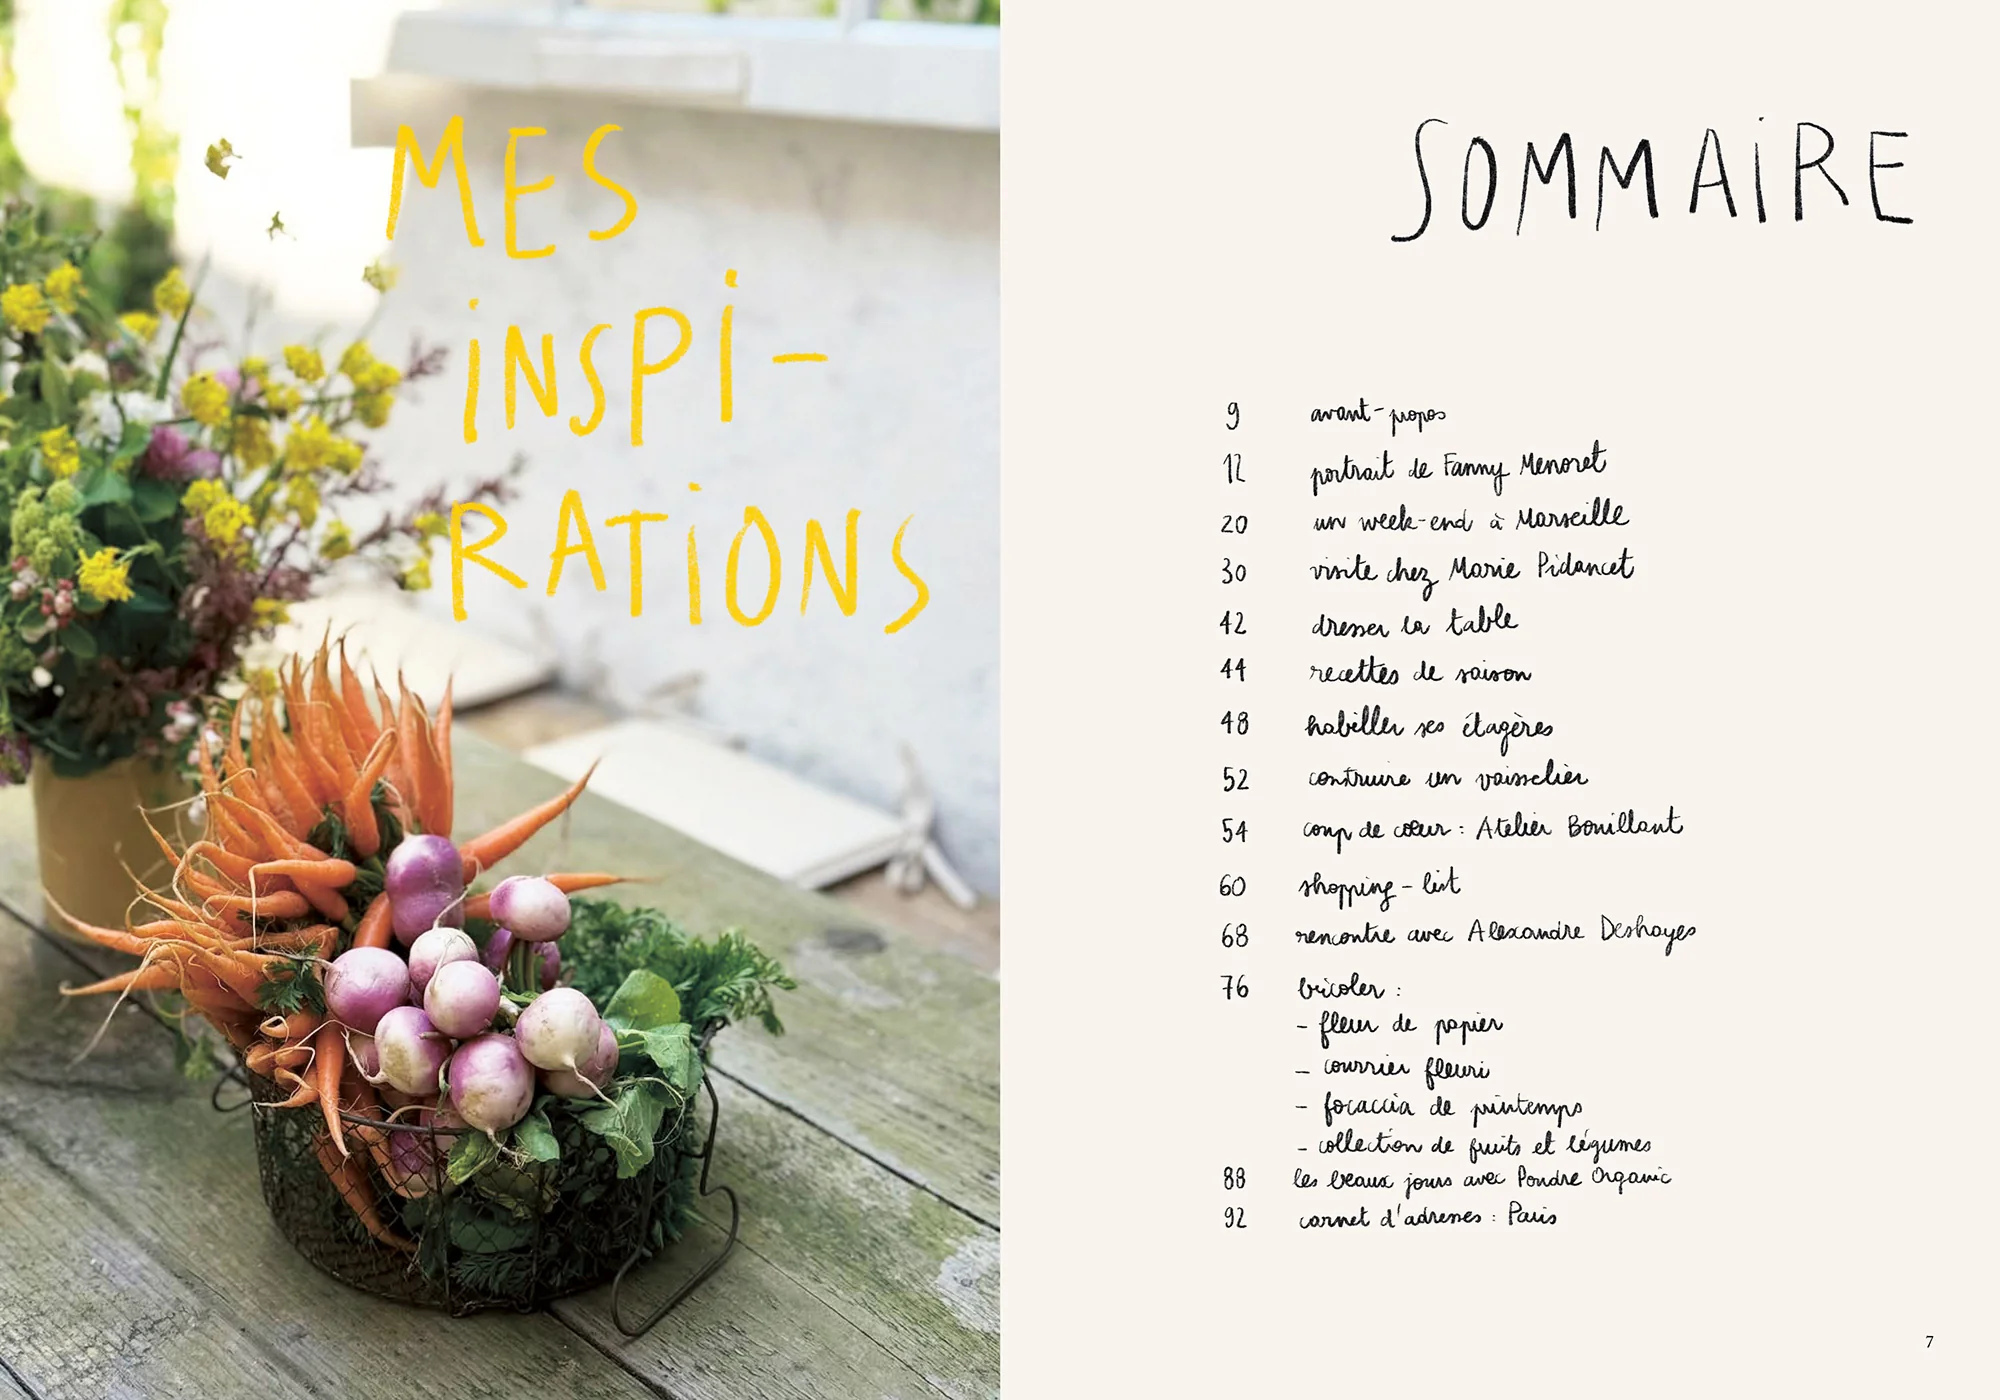 MES
iNSPi-
RATiONS
SOMMAiRE
9 avant-propos
12 portrait de Fanny Menoret
20 un week-end à Marseille
30 visite chez Marie Pidancet
42 dresser la table
44 recettes de saison
48 habiller ses étagères
52 construire un vaisselier
54 coup de cœur : Atelier Bouillant
60 shopping-list
68 rencontre avec Alexandre Deshayes
76 bricoler :
- fleur de papier
- courrier fleuri
- focaccia de printemps
- collection de fruits et légumes
88 les beaux jours avec Poudre Organic
92 carnet d'adresses : Paris
7